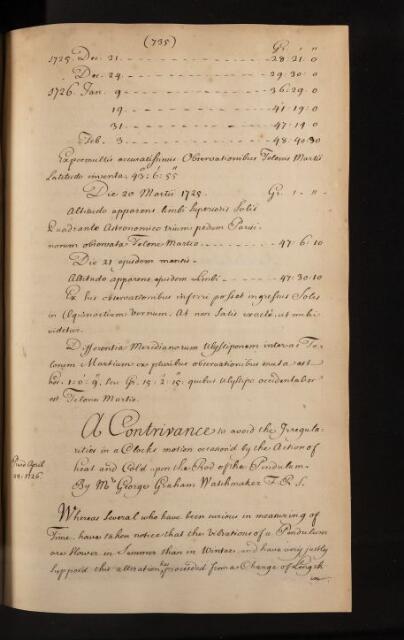 (735)
Gr. ' "
1725. Dec. 21. - - - 28. 21. 0
Dec. 24. - - - 29. 30. 0
1726. Jan. 9 - - - 36. 29. 0
19 - - - 41. 19. 0
31 - - - 47. 19. 0
Feb. 3 - - - 48. 40. 30
Ex permultis accuratissimis Observationibus Telone Martis
Latitudo inventa. 43°. 6'. 55"
Die 20 Martii 1725. Gr. ' "
Altitudo apparens limbi superioris Solis
Quadrante Astronomico trium pedum Parisi-
norum observata Telone Martio. - - - 47. 6. 10
Die 21 ejusdem mensis -
Altitudo apparens ejusdem limbi - - - 47. 30. 10
Ex his observationibus inferri posset ingressus Solis
in Æquinoctium vernum. At non satis exacté, ut mihi
videtur.
Differentia Meridianorum Ulyssiponem inter ac Te-
lonem Martium ex pluribus observationibus eruta est
hor. 1. 0'. 9", seu Gr. 15. 2'. 15": quibus Ulyssipo occidentalior
est Telone Martio.
A Contrivance to avoid the Irregula-
rities in a Clocks motion occasion'd by the Action of
heat and Cold upon the Rod of the Pendulum.
By Mr George Graham Watchmaker F. R. S.
April
1726.
Whereas several who have been curious in measuring of
Time, have taken notice that the Vibrations of a Pendulum
are slower in Summer than in Winter, and have very justly
supposed this alteration has proceeded from a Change of Length